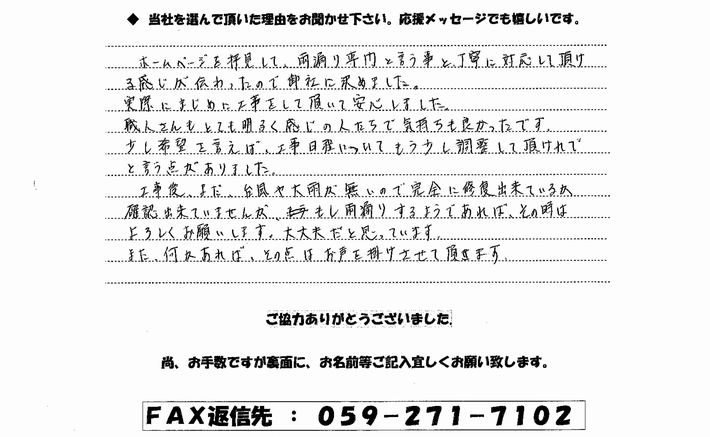 ◆ 当社を選んで頂いた理由をお聞かせ下さい。応援メッセージでも嬉しいです。
ホームページを拝見して、雨漏り専門と言う事と、丁寧に対応して頂け
る感じが伝わったので御社に決めました。
実際にまじめに工事をして頂いて安心しました。
職人さんもとても明るく感じの人たちで気持ちも良かったです。
少し希望を言えば、工事日程についてもう少し調整して頂ければ
と言う点がありました。
工事後、まだ、台風や大雨が無いので完全に修復出来ているか
確認出来ていませんが、もし雨漏りするようであれば、その時は
よろしくお願いします。大丈夫だと思っています。
また、何かあれば、その点はお声を掛けさせて頂きます。
ご協力ありがとうございました。
尚、お手数ですが裏面に、お名前等ご記入宜しくお願い致します。
FAX返信先 : 059-271-7102